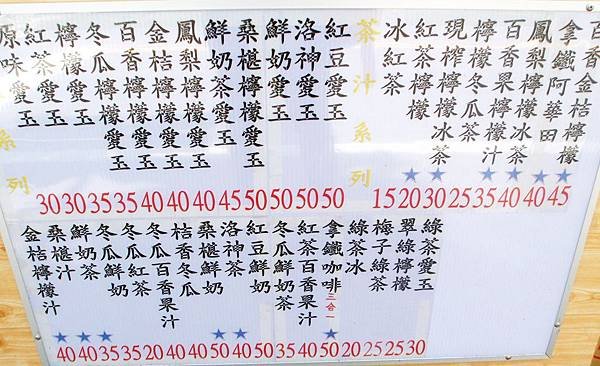 系列
原味愛玉
紅茶愛玉
檸檬愛玉
冬瓜檸檬愛玉
百香檸檬愛玉
金桔檸檬愛玉
鳳梨檸檬愛玉
鮮奶茶愛玉
桑椹檸檬愛玉
鮮奶愛玉
洛神愛玉
紅豆愛玉
30 30 35 35 40 40 40 45 50 50 50 50
茶汁系列
冰紅茶
紅茶檸檬
現榨檸檬冰茶
檸檬冬瓜茶
百香果檸檬汁
鳳梨檸檬冰茶
拿鐵阿華田
百香金桔檸檬
15 20 30 25 35 40 40 45
金桔檸檬汁
桑椹汁
鮮奶茶
冬瓜鮮奶
冬瓜紅茶
冬瓜百香果汁
桔香冬瓜
桑椹鮮奶
洛神茶
紅豆鮮奶
冬瓜鮮奶茶
紅茶百香果汁
拿鐵咖啡三合一
綠茶冰
梅子綠茶
翠綠檸檬
綠茶愛玉
40 40 35 35 20 40 40 50 40 50 35 40 50 20 25 25 30